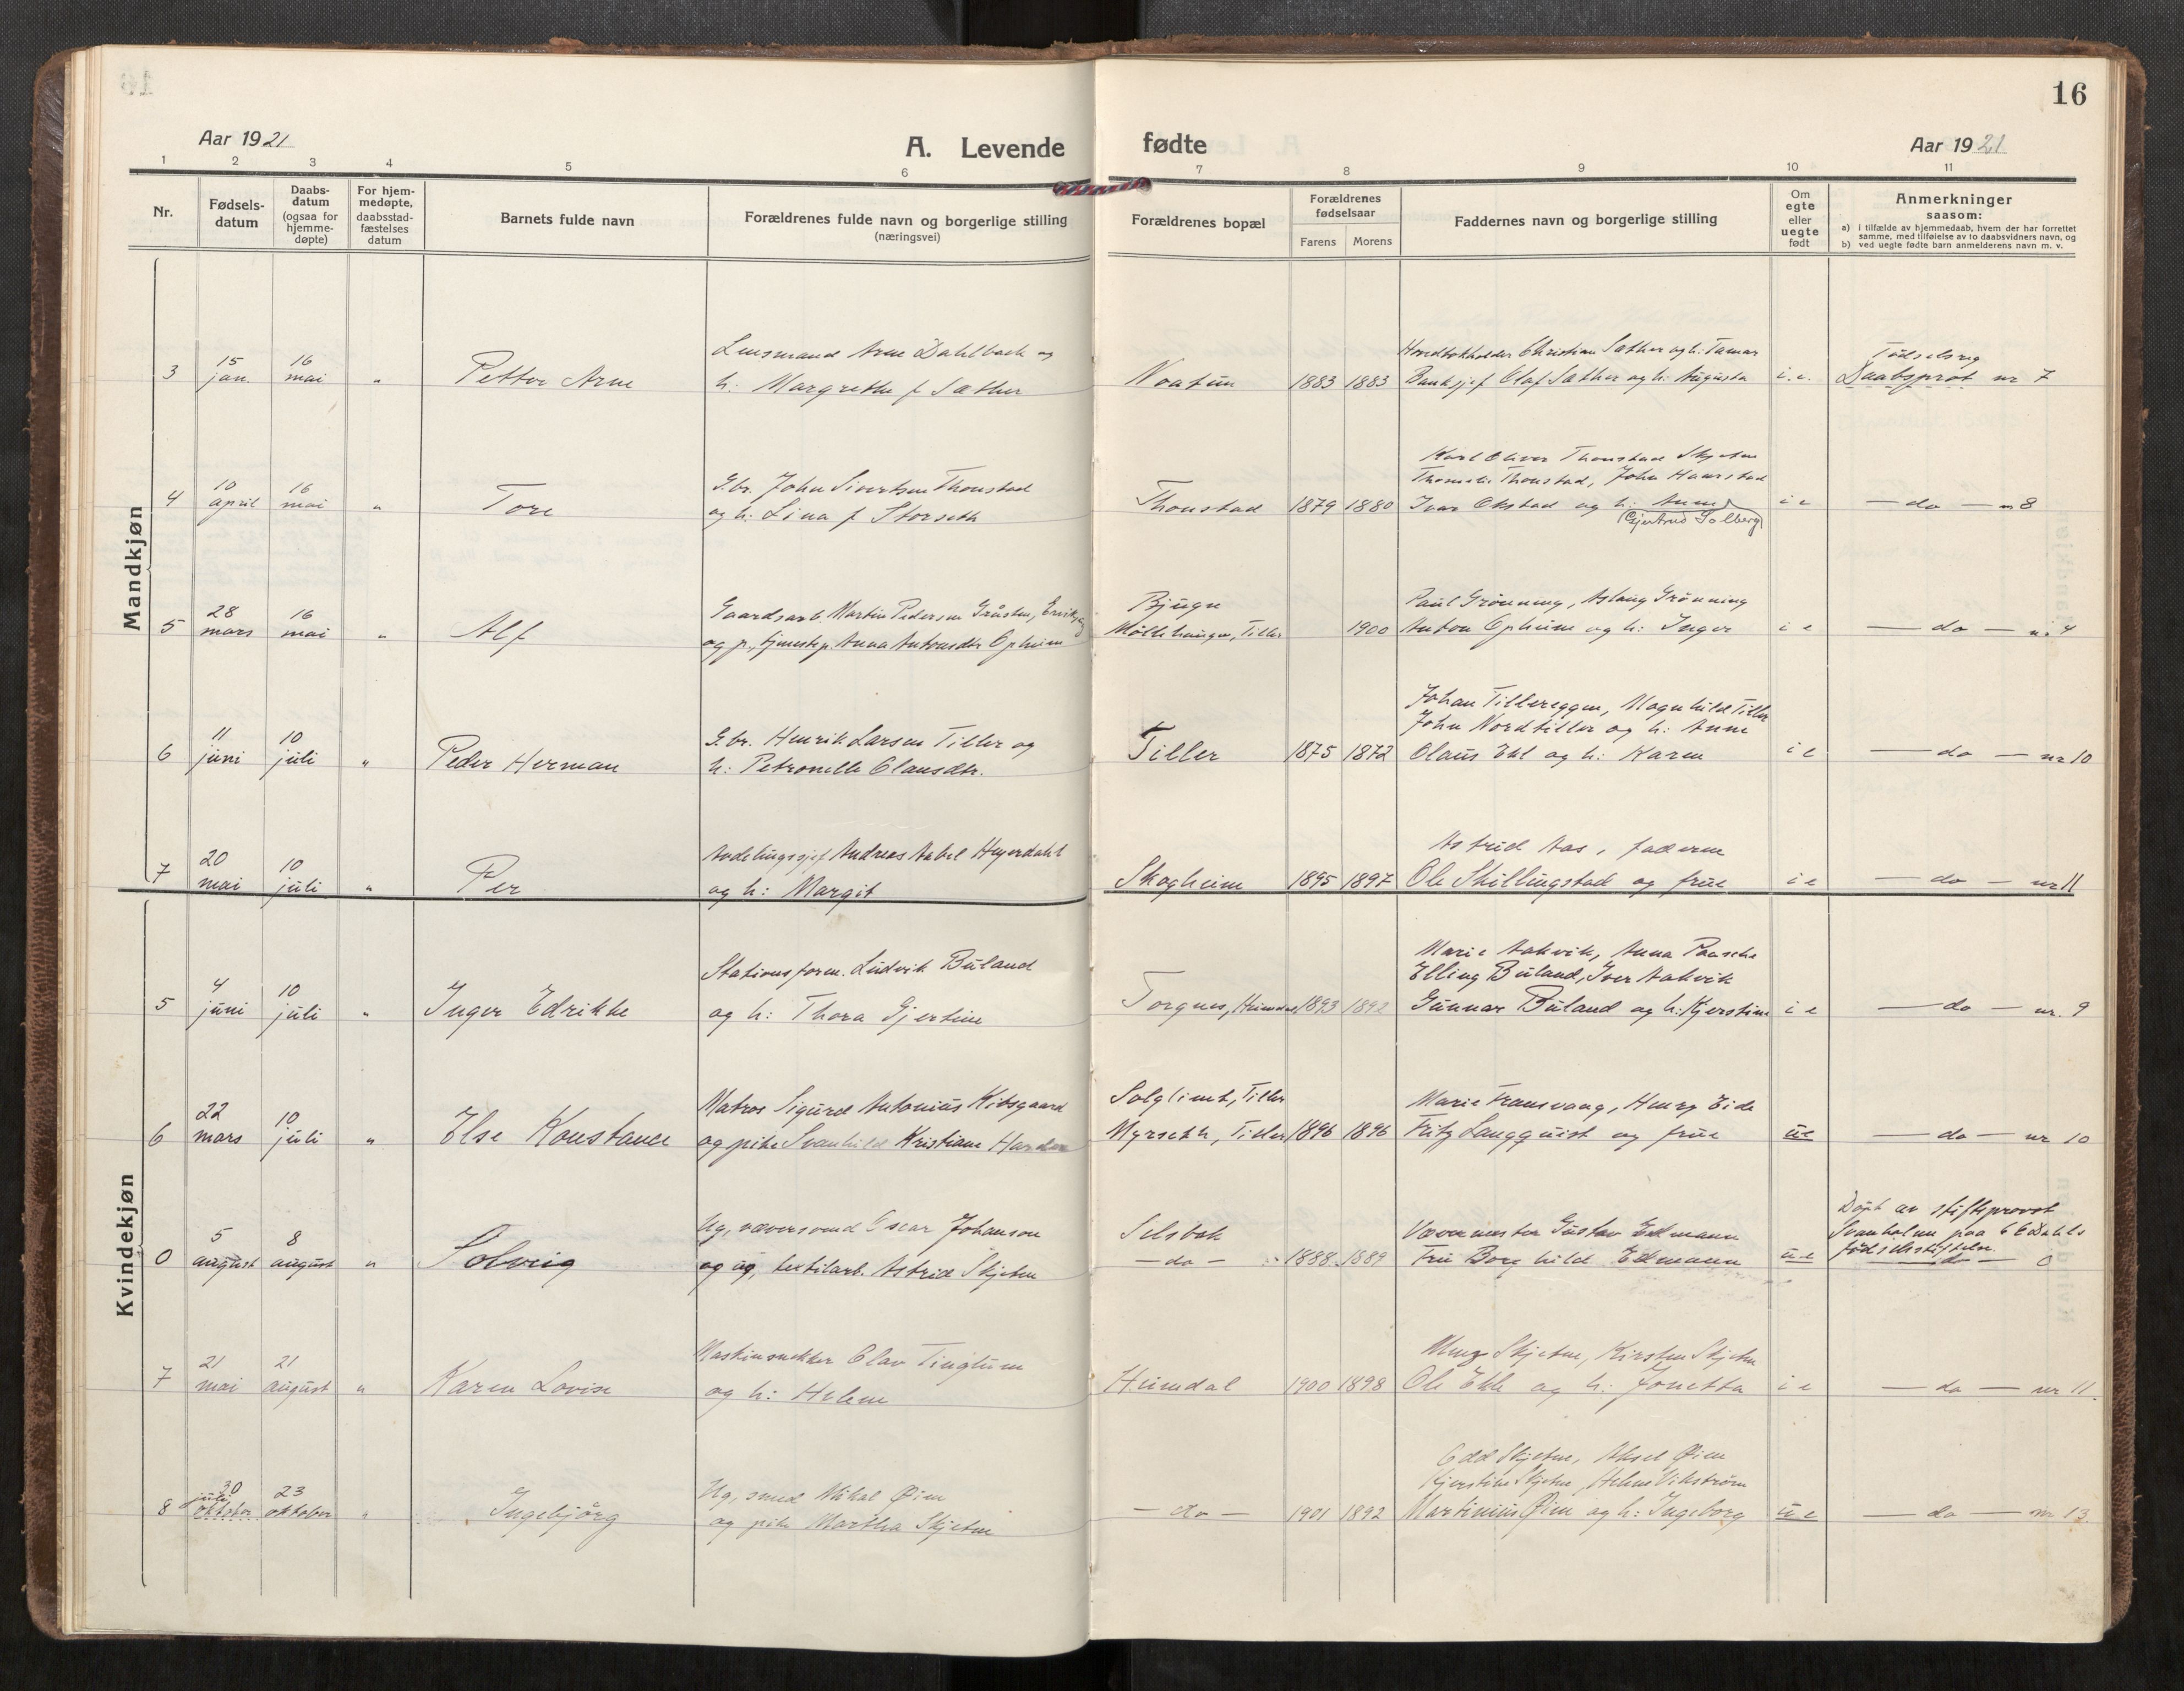 16
Aar 1921
A. Levende fødte
Aar 1921
1 2 3 4 5 6 7 8 9 10 11
Nr.
Fødsels-
datum
Daabs-
datum
(ogsaa for
hjemme-
døpte)
For hjem-
medøpte,
daabsstad-
fæstelses
datum
Barnets fulde navn
Forældrenes fulde navn og borgerlige stilling
(næringsvei)
Forældrenes bopæl
Forældrenes
fødselsaar
Farens Morens
Faddernes navn og borgerlige stilling
Om
egte
eller
uegte
født
Anmerkninger
saasom:
a) i tilfælde av hjemmedaab, hvem der har forrettet
samme, med tilføielse av to daabsvidners navn, og
b) ved uegte fødte barn anmelderens navn m. v.
Mandkjøn
15 16 Lensmand Arne Dahlback og Hovedbokholder Christian Sæther og h: Tamar Födselsreg
3 jan. mai " Petter Arne h: Margrethe f Sæther Noatun 1883 1883 Banksjef Olaf Sæther og h: Augusta i.e. Daabsprot nr 7
Karl Oliver Thonstad Skjetne
10 16 G.br. John Sivertsen Thonstad Thomelie Thonstad, John Haarstad
4 april mai " Tore og h: Lina f Storseth Thonstad 1879 1880 Ivar Okstad og h: Anne i e — do — n 8
(Gjertrud Solberg)
28 16 Gaardsarb. Martin Pedersen Gråsten, Bjugn Paul Grönning, Aslaug Grönning
5 mars mai " Alf og p., tjenestep. Anna Antonsdtr Opheim Möllehaugen, Tiller 1900 Anton Opheim og h: Inger i e — do — nr 4
Johan Tillereggen, Magnhild Tiller
11 10 G.br. Henrik Larsen Tiller og John Nordtiller og h: Anne
6 juni juli " Peder Herman h: Petronelle Olausdtr. Tiller 1875 1872 Olaus Ekl og h: Karen i e — do — nr 10
20 10 Avdelingssjef Andreas Aabel Heyerdahl Astrid Aas, faderen
7 mai juli " Per og h: Margit Skogheim 1895 1897 Ole Skillingstad og frue i e — do — nr 11
Kvindekjøn
Marie Aakvik, Anna Paasche
4 10 Stationsform. Ludvik Buland Elling Buland, Iver Aakvik
5 juni juli " Inger Edrikke og h: Thora Gjertine Torgnes, Heimdal 1893 1892 Gunnar Buland og h: Kjerstine i e — do — nr. 9
22 10 Matros Sigurd Antonius Kibsgaard Solglimt, Tiller Marie Transvaag, Henry Eide
6 mars juli " Else Konstance og pike Svanhild Kristiane Myrseth, Tiller 1896 1896 Fritz Langquist og frue ue — do — nr 10
Döpt av stiftsprovst
5 8 Ug. væversvend Oscar Johanson Selsbak Vævermester Gustav Edmann Svanholm paa E C Dahls
0 august august " Solveig og ug. textilarb. Astrid Skjetne — do — 1888 1889 Fru Borghild Edmann ue födselsstiftelse. — do — 0
21 21 Maskinsnekker Olav Tinglum Skjetne, Kirsten Skjetne
7 mai august " Karen Lovise og h: Helene Heimdal 1900 1898 Ole Ekle og h: Jonetta i e — do — nr 11.
Odd Skjetne, Aksel Øien
30 23 Ug. smed Mikal Øien Kjerstine Skjetne, Helene Vikström
juli
8 oktober oktober " Ingebjörg og pike Martha Skjetne — do — 1901 1892 Martinius Øien og h: Ingeborg ue — do — nr 13.